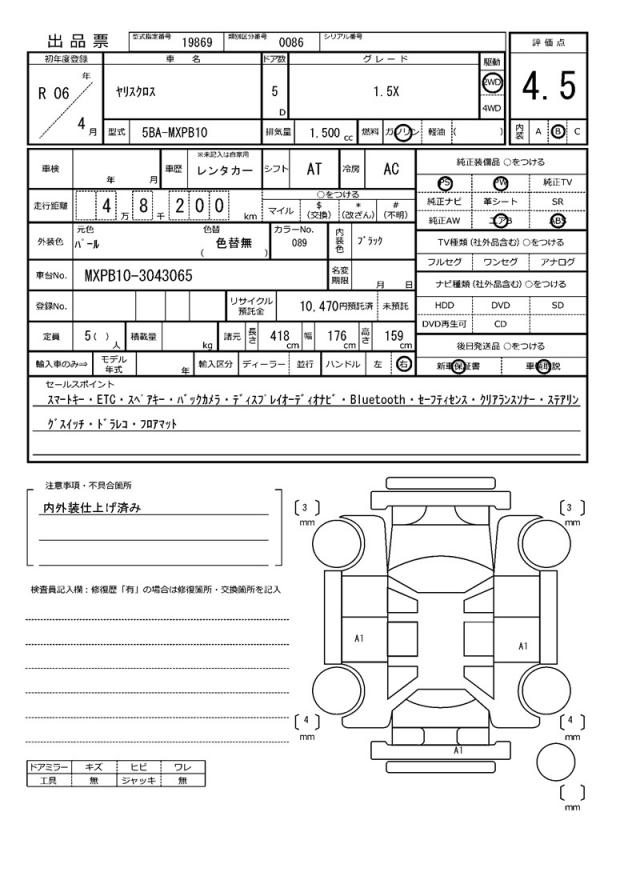 出品票 型式指定番号 19869 類別区分番号 0086 シリアル番号
評価点
4.5
内装 A B C
初年度登録 車名 ドア数 グレード 駆動
R 06 年 4 月
ヤリスクロス 5 D 1.5X 2WD 4WD
型式 5BA-MXPB10 排気量 1.500 cc 燃料 ガソリン 軽油 ( )
車検 年 月 車歴 ※未記入は自家用 レンタカー シフト AT 冷房 AC
走行距離 4 万 8 千 2 0 0 km
○をつける
マイル $ (交換) * (改ざん) # (不明)
外装色 元色 パール 色替 ( 色替無 ) カラーNo. 089 内装色 ブラック
車台No. MXPB10-3043065 名変期限 月 日
登録No. リサイクル預託金 10,470円預託済 未預託
定員 5( ) 人 積載量 kg 諸元 長さ 418 cm 幅 176 cm 高さ 159 cm
輸入車のみ⇒ モデル年式 年 輸入区分 ディーラー 並行 ハンドル 左 右
純正装備品 ○をつける
PS PW 純正TV
純正ナビ 革シート SR
純正AW エアB ABS
TV種類(社外品含む)○をつける
フルセグ ワンセグ アナログ
ナビ種類(社外品含む)○をつける
HDD DVD SD
DVD再生可 CD
後日発送品 ○をつける
新車保証書 車輌取説
セールスポイント
スマートキー・ETC・スペアキー・バックカメラ・ディスプレイオーディオナビ・Bluetooth・セーフティセンス・クリアランスソナー・ステアリン
グスイッチ・ドラレコ・フロアマット
注意事項・不具合箇所
内外装仕上げ済み
検査員記入欄：修復歴「有」の場合は修復箇所・交換箇所を記入
ドアミラー キズ ヒビ ワレ
工具 無 ジャッキ 無
[ 3 ] mm
[ 3 ] mm
A1
A1
[ 4 ] mm
[ 4 ] mm
A1
[ ] mm